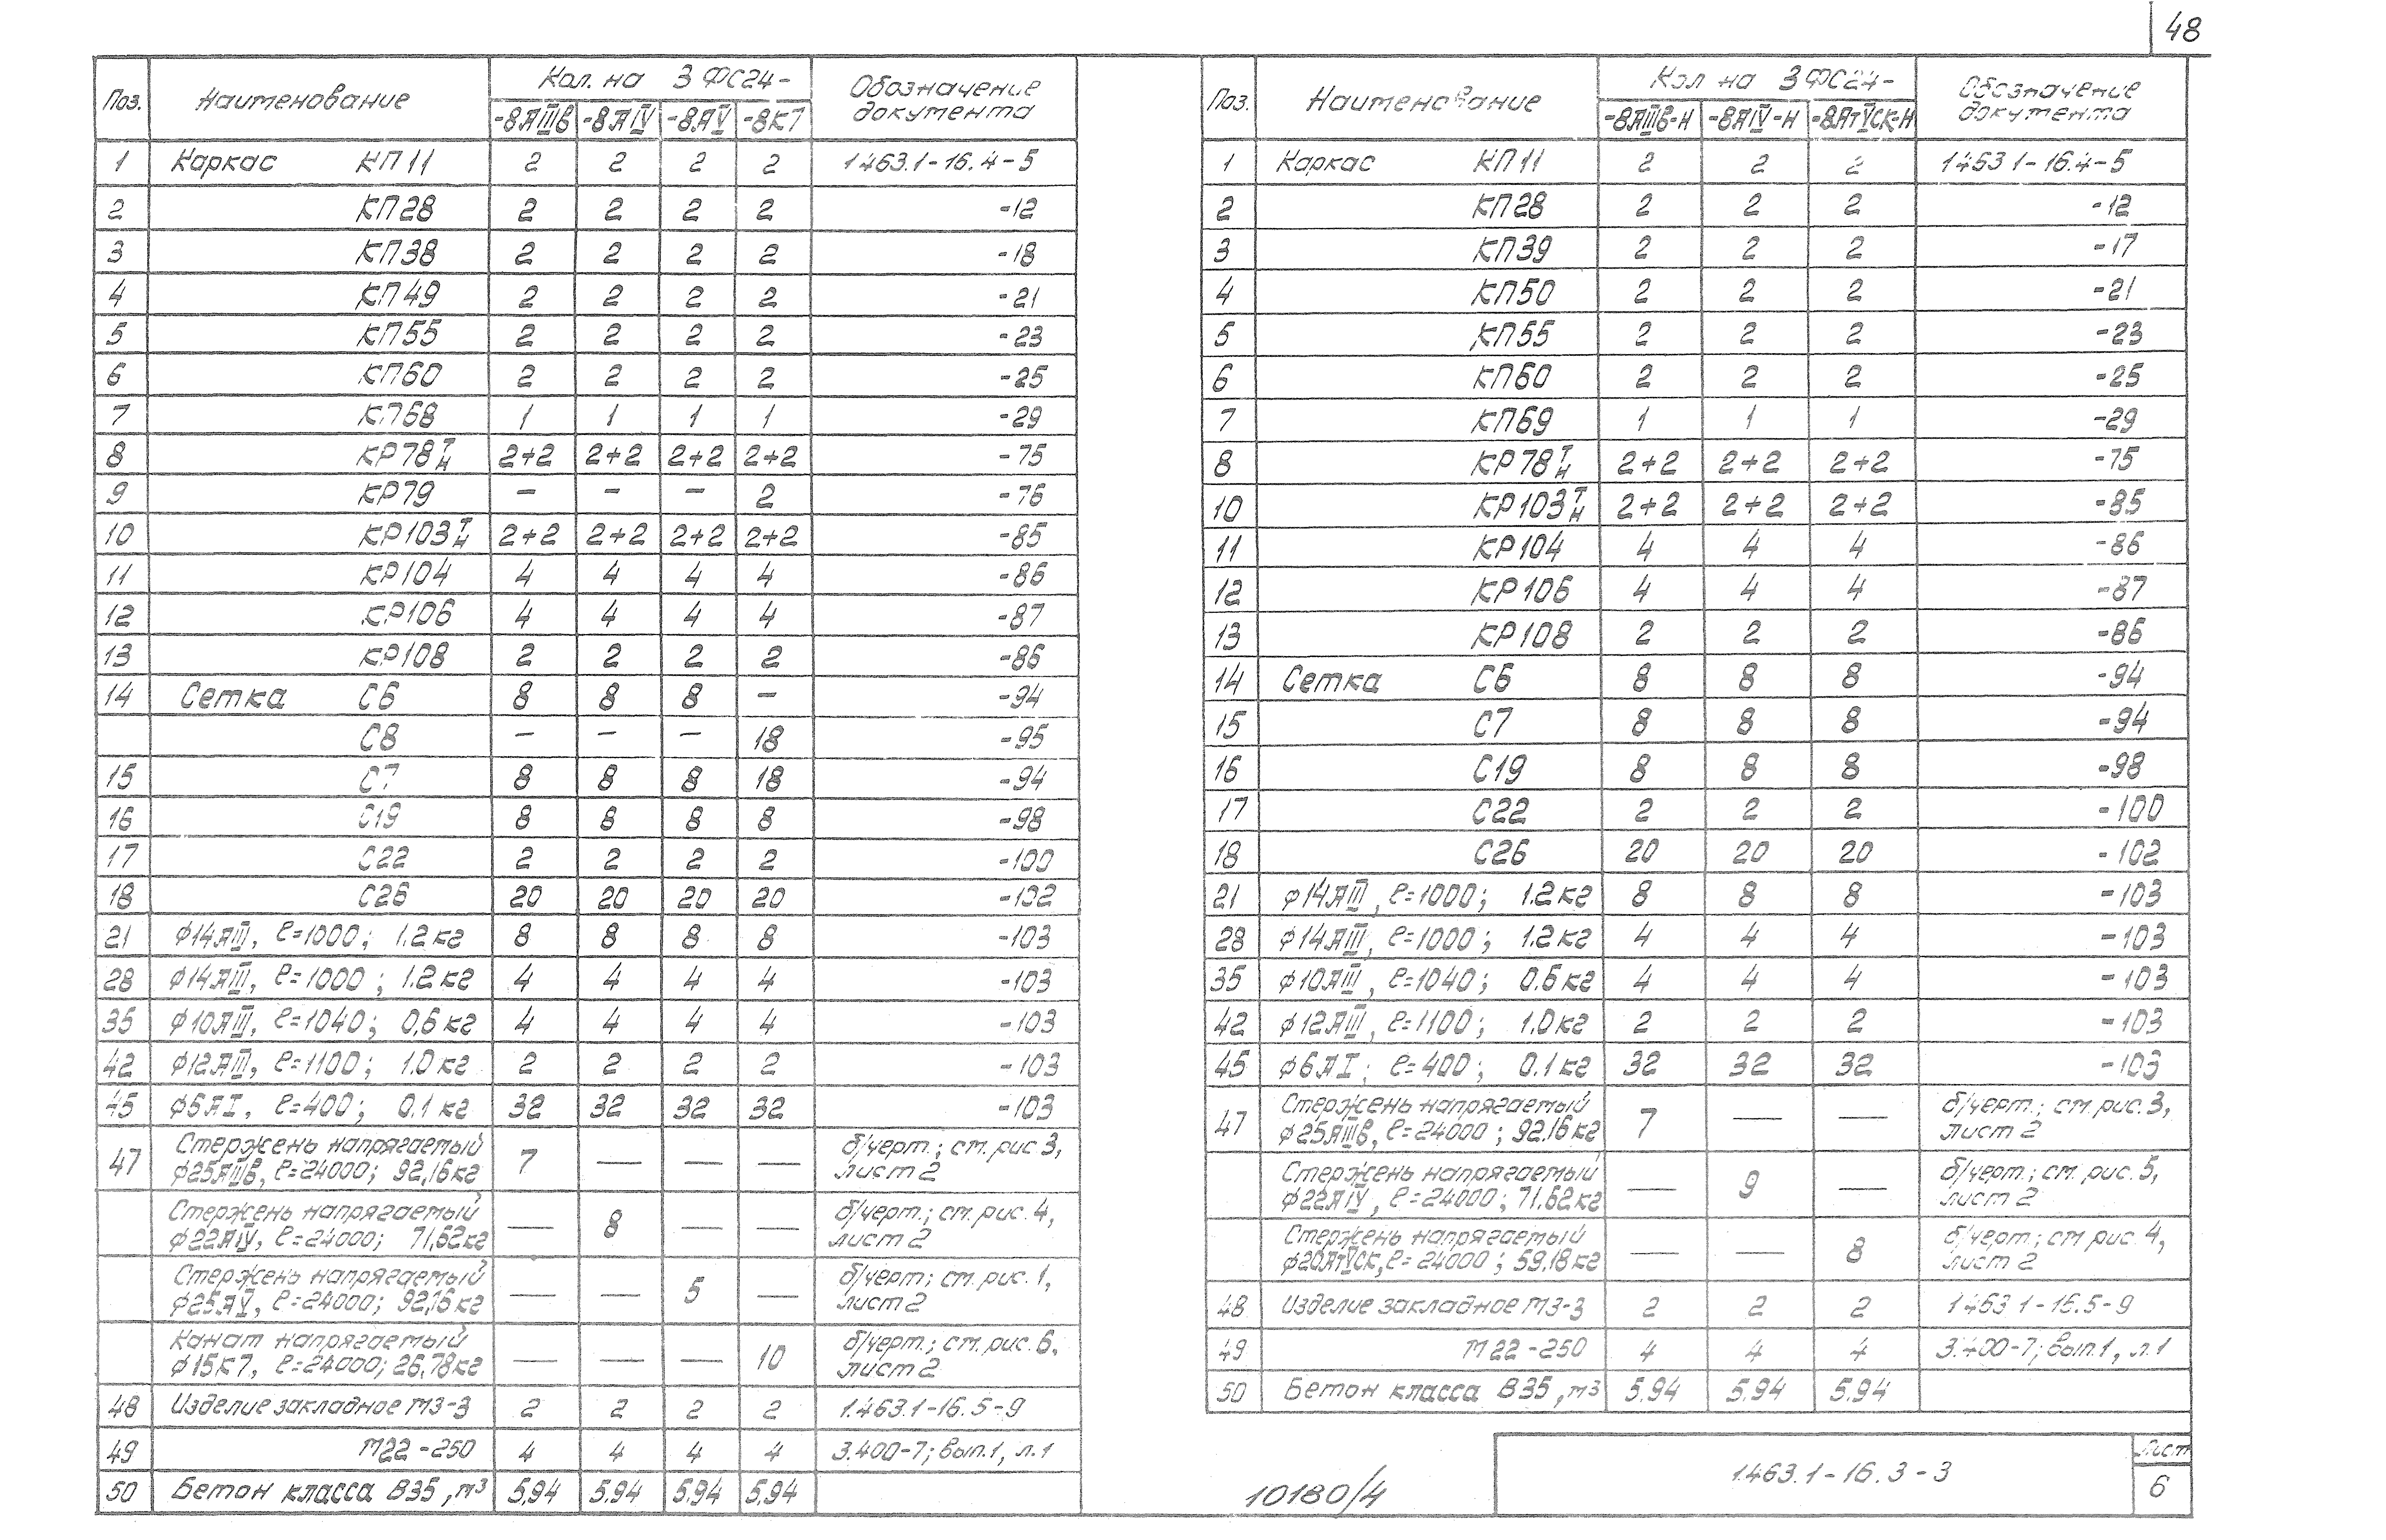 48
Поз. Наименование Кол. на 3ФС24- Обозначение документа
-8АIIIв -8АIV -8АV -8К7
1 Каркас КП11 2 2 2 2 1.463.1-16.4-5
2 КП28 2 2 2 2 -12
3 КП38 2 2 2 2 -18
4 КП49 2 2 2 2 -21
5 КП55 2 2 2 2 -23
6 КП60 2 2 2 2 -25
7 КП68 1 1 1 1 -29
8 КР78 Т/Н 2+2 2+2 2+2 2+2 -75
9 КР79 — — — 2 -76
10 КР103 Т/Н 2+2 2+2 2+2 2+2 -85
11 КР104 4 4 4 4 -86
12 КР106 4 4 4 4 -87
13 КР108 2 2 2 2 -86
14 Сетка С6 8 8 8 — -94
С8 — — — 18 -95
15 С7 8 8 8 18 -94
16 С19 8 8 8 8 -98
17 С22 2 2 2 2 -100
18 С26 20 20 20 20 -102
21 ϕ14АIII, ℓ=1000; 1.2кг 8 8 8 8 -103
28 ϕ14АIII, ℓ=1000; 1.2кг 4 4 4 4 -103
35 ϕ10АIII, ℓ=1040; 0,6кг 4 4 4 4 -103
42 ϕ12АIII, ℓ=1100; 1.0кг 2 2 2 2 -103
45 ϕ6АI, ℓ=400; 0.1кг 32 32 32 32 -103
47 Стержень напрягаемый 7 — — — б/черт.; см. рис 3,
ϕ25АIIIв, ℓ=24000; 92,16кг лист 2
Стержень напрягаемый — 8 — — б/черт.; см. рис. 4,
ϕ22АIV, ℓ=24000; 71,62кг лист 2
Стержень напрягаемый — — 5 — б/черт; см. рис. 1,
ϕ25АV, ℓ=24000; 92,16кг лист 2
Канат напрягаемый — — — 10 б/черт.; см. рис. 6,
ϕ15К7, ℓ=24000; 26,78кг лист 2
48 Изделие закладное М3-3 2 2 2 2 1.463.1-16.5-9
49 М22-250 4 4 4 4 3.400-7; вып.1, л.1
50 Бетон класса В35, м³ 5,94 5,94 5,94 5,94
Поз. Наименование Кол на 3ФС24- Обозначение документа
-8АIIIв-Н -8АIV-Н -8АтVСК-Н
1 Каркас КП11 2 2 2 1463 1-16.4-5
2 КП28 2 2 2 -12
3 КП39 2 2 2 -17
4 КП50 2 2 2 -21
5 КП55 2 2 2 -23
6 КП60 2 2 2 -25
7 КП69 1 1 1 -29
8 КР78 Т/Н 2+2 2+2 2+2 -75
10 КР103 Т/Н 2+2 2+2 2+2 -85
11 КР104 4 4 4 -86
12 КР106 4 4 4 -87
13 КР108 2 2 2 -86
14 Сетка С6 8 8 8 -94
15 С7 8 8 8 -94
16 С19 8 8 8 -98
17 С22 2 2 2 -100
18 С26 20 20 20 -102
21 ϕ14АIII, ℓ=1000; 1.2кг 8 8 8 -103
28 ϕ14АIII, ℓ=1000; 1.2кг 4 4 4 -103
35 ϕ10АIII, ℓ=1040; 0.6кг 4 4 4 -103
42 ϕ12АIII, ℓ=1100; 1.0кг 2 2 2 -103
45 ϕ6АI; ℓ=400; 0.1кг 32 32 32 -103
47 Стержень напрягаемый 7 — — б/черт.; см. рис. 3,
ϕ25АIIIв, ℓ=24000; 92,16кг лист 2
Стержень напрягаемый — 9 — б/черт.; см. рис. 5,
ϕ22АIV, ℓ=24000; 71.62кг лист 2
Стержень напрягаемый — — 8 б/черт; см рис. 4,
ϕ20АтVСК, ℓ=24000; 59,18кг лист 2
48 Изделие закладное М3-3 2 2 2 1463 1-16.5-9
49 М22-250 4 4 4 3.400-7; вып.1, л.1
50 Бетон класса В35, м³ 5,94 5,94 5,94
10180/4
1.463.1-16.3-3
Лист
6